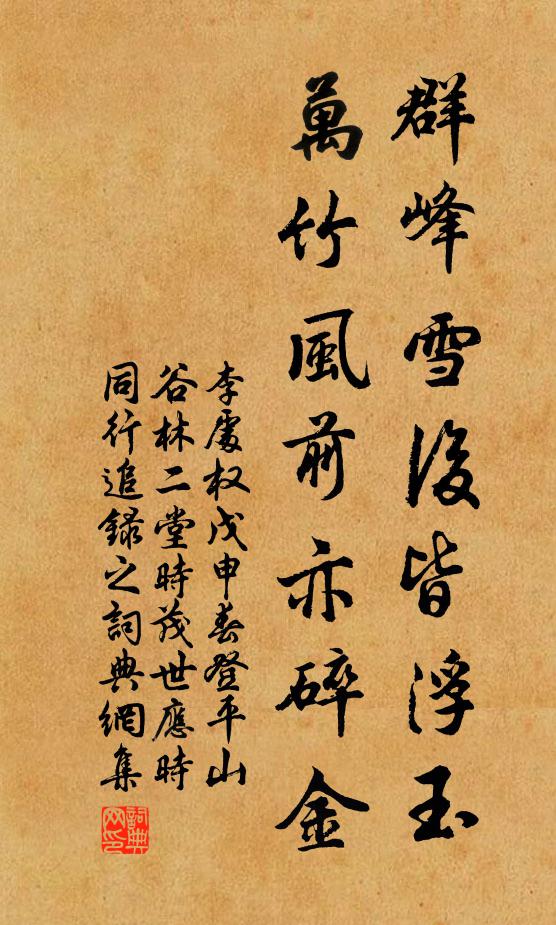 群峰雪後皆浮玉
萬竹風前亦碎金
李處权戊申春登平山
谷林二堂時茂世應時
同行追錄之詞典網集
詞典网印